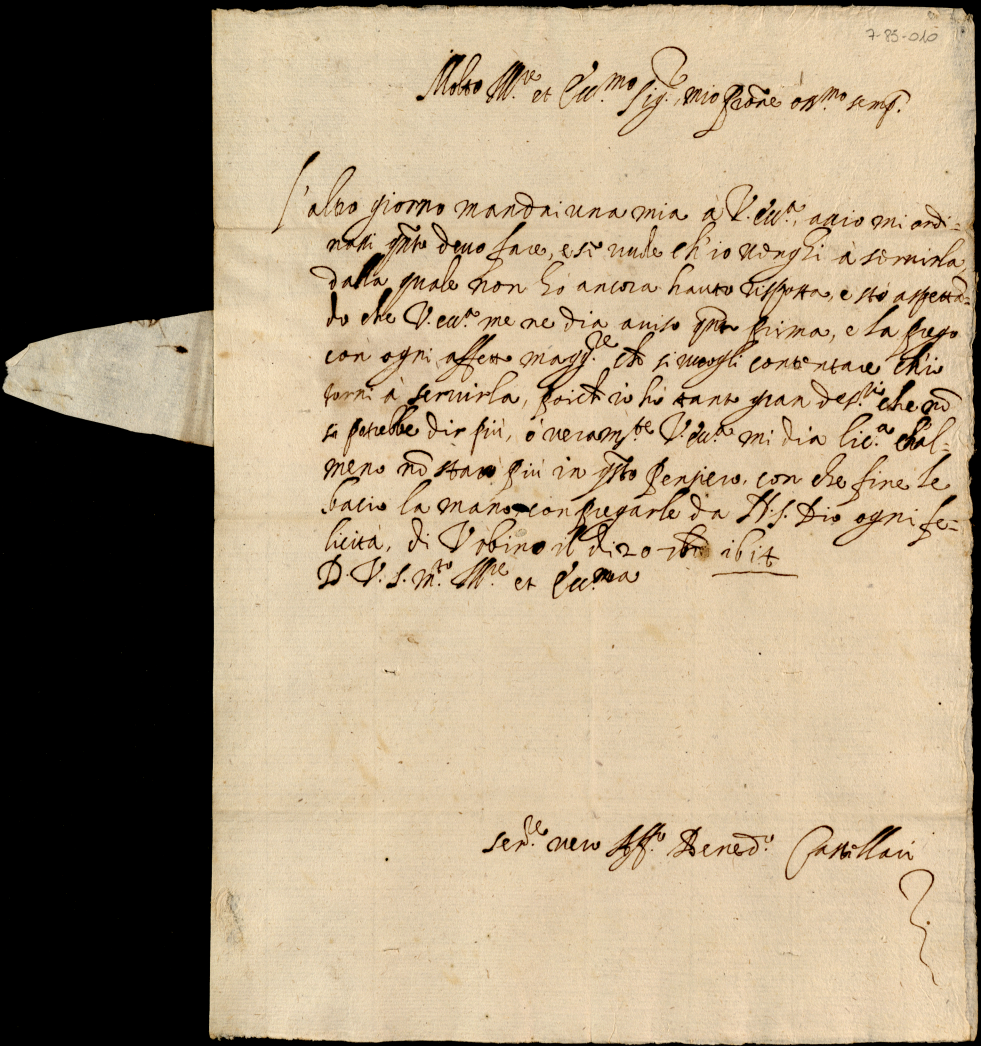 7-85-010
Molto Ill.re et Ecc.mo Sig.re, mio p̃rone oss.mo semp.
L'altro giorno mandai una mia à V. ecc.a, accio mi ordi-
nassi q̃nto devo fare, e se vuole ch'io venghi à servirla,
dalla quale non hò ancora hauto risposta, e stò aspettã-
do che V. ecc.a me ne dia aviso q̃nto prima, e la prego
con ogni affetto magg.re ch̃ si vuogli contentare ch'io
torni à servirla, poich̃ io hò tanto gran des.rio che nõ
si potrebbe dir più, ò veram.te V. ecc.a mi dia lic.a ch'al-
meno nõ starò più in q̃sto pensiero, con che fine le
bacio la mano con pregarle da N. S. Dio ogni fe-
licità, di Urbino il dì 20 1614
D. V. S. m.to Ill.re et Ecc.ma
ser.re vero Aff.o Bened.o Castellari